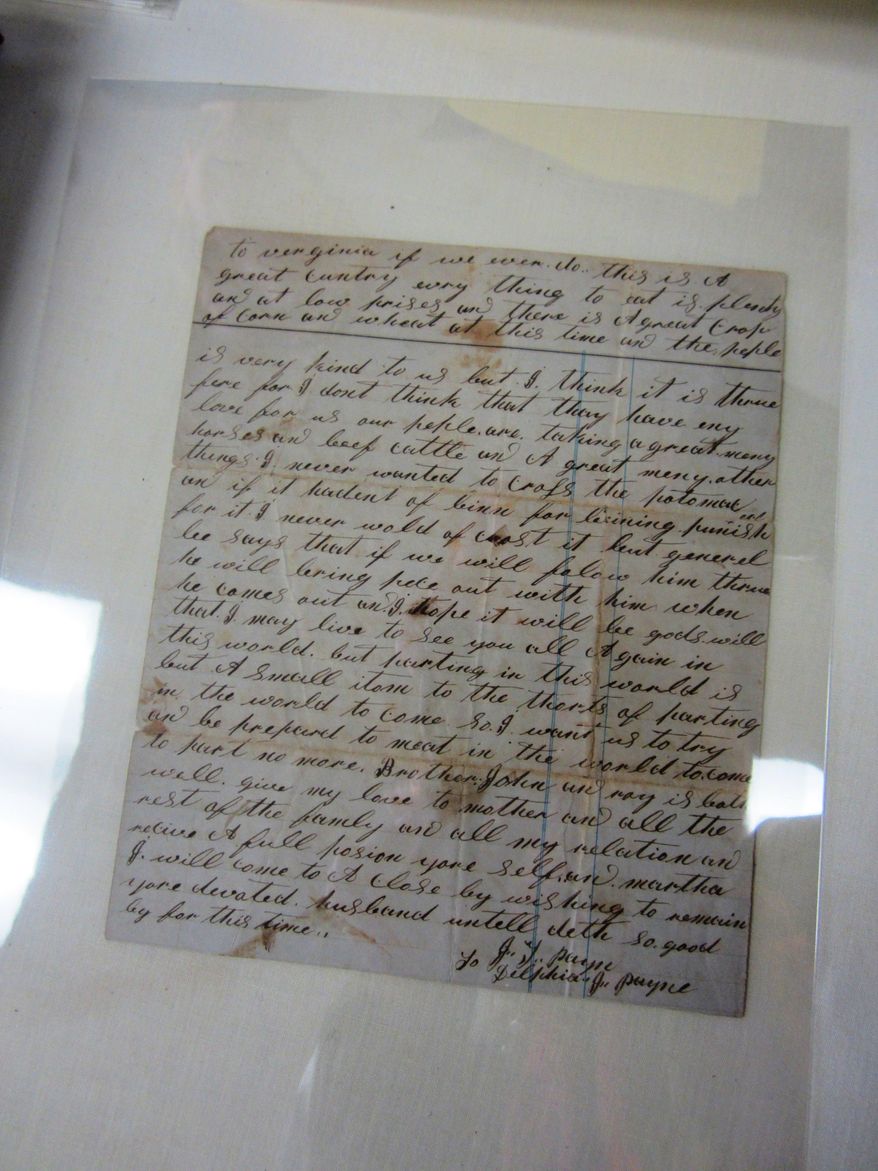 to verginia if we ever do.. this is A
great cuntry evry thing to eat is plenty
and at low prises and there is A great Crop
of Corn and wheat at this time and the peple
is very kind to us but I. think it is throue
fere for I dont think that thay have eny
love for us our peple. are. taking a great meny
horses and beef cattle and A great meny. other
things. I. never wanted to cross the potomac
an if it hadent of binn for punish
for it I never wold of crost it but general
lee says that if we will folow him throue
he will bring pece out with him when
he comes out and. I. hope it will be gods will
that. I may live to see you all Again in
this world. but parting in this world is
but A small itom to the thorts of parting
in the world to come so. I. want us to try
and be prepard to meat in the world to. come
to part no more. Brother. John and roy is both
well. give my love to mother and all the
rest of the famly and all my relation and
recive A full posion yore self. and. martha
I. will come to A close by wishing to remain
yore devoted. husband untell deth so. good
by for this time..
J. payne
To Delphia J. payne